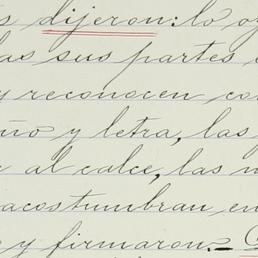 s dijeron: lo o
as sus partes
y reconocen co
ño y letra, las
al calce, las
acostumbran en
e y firmaron.